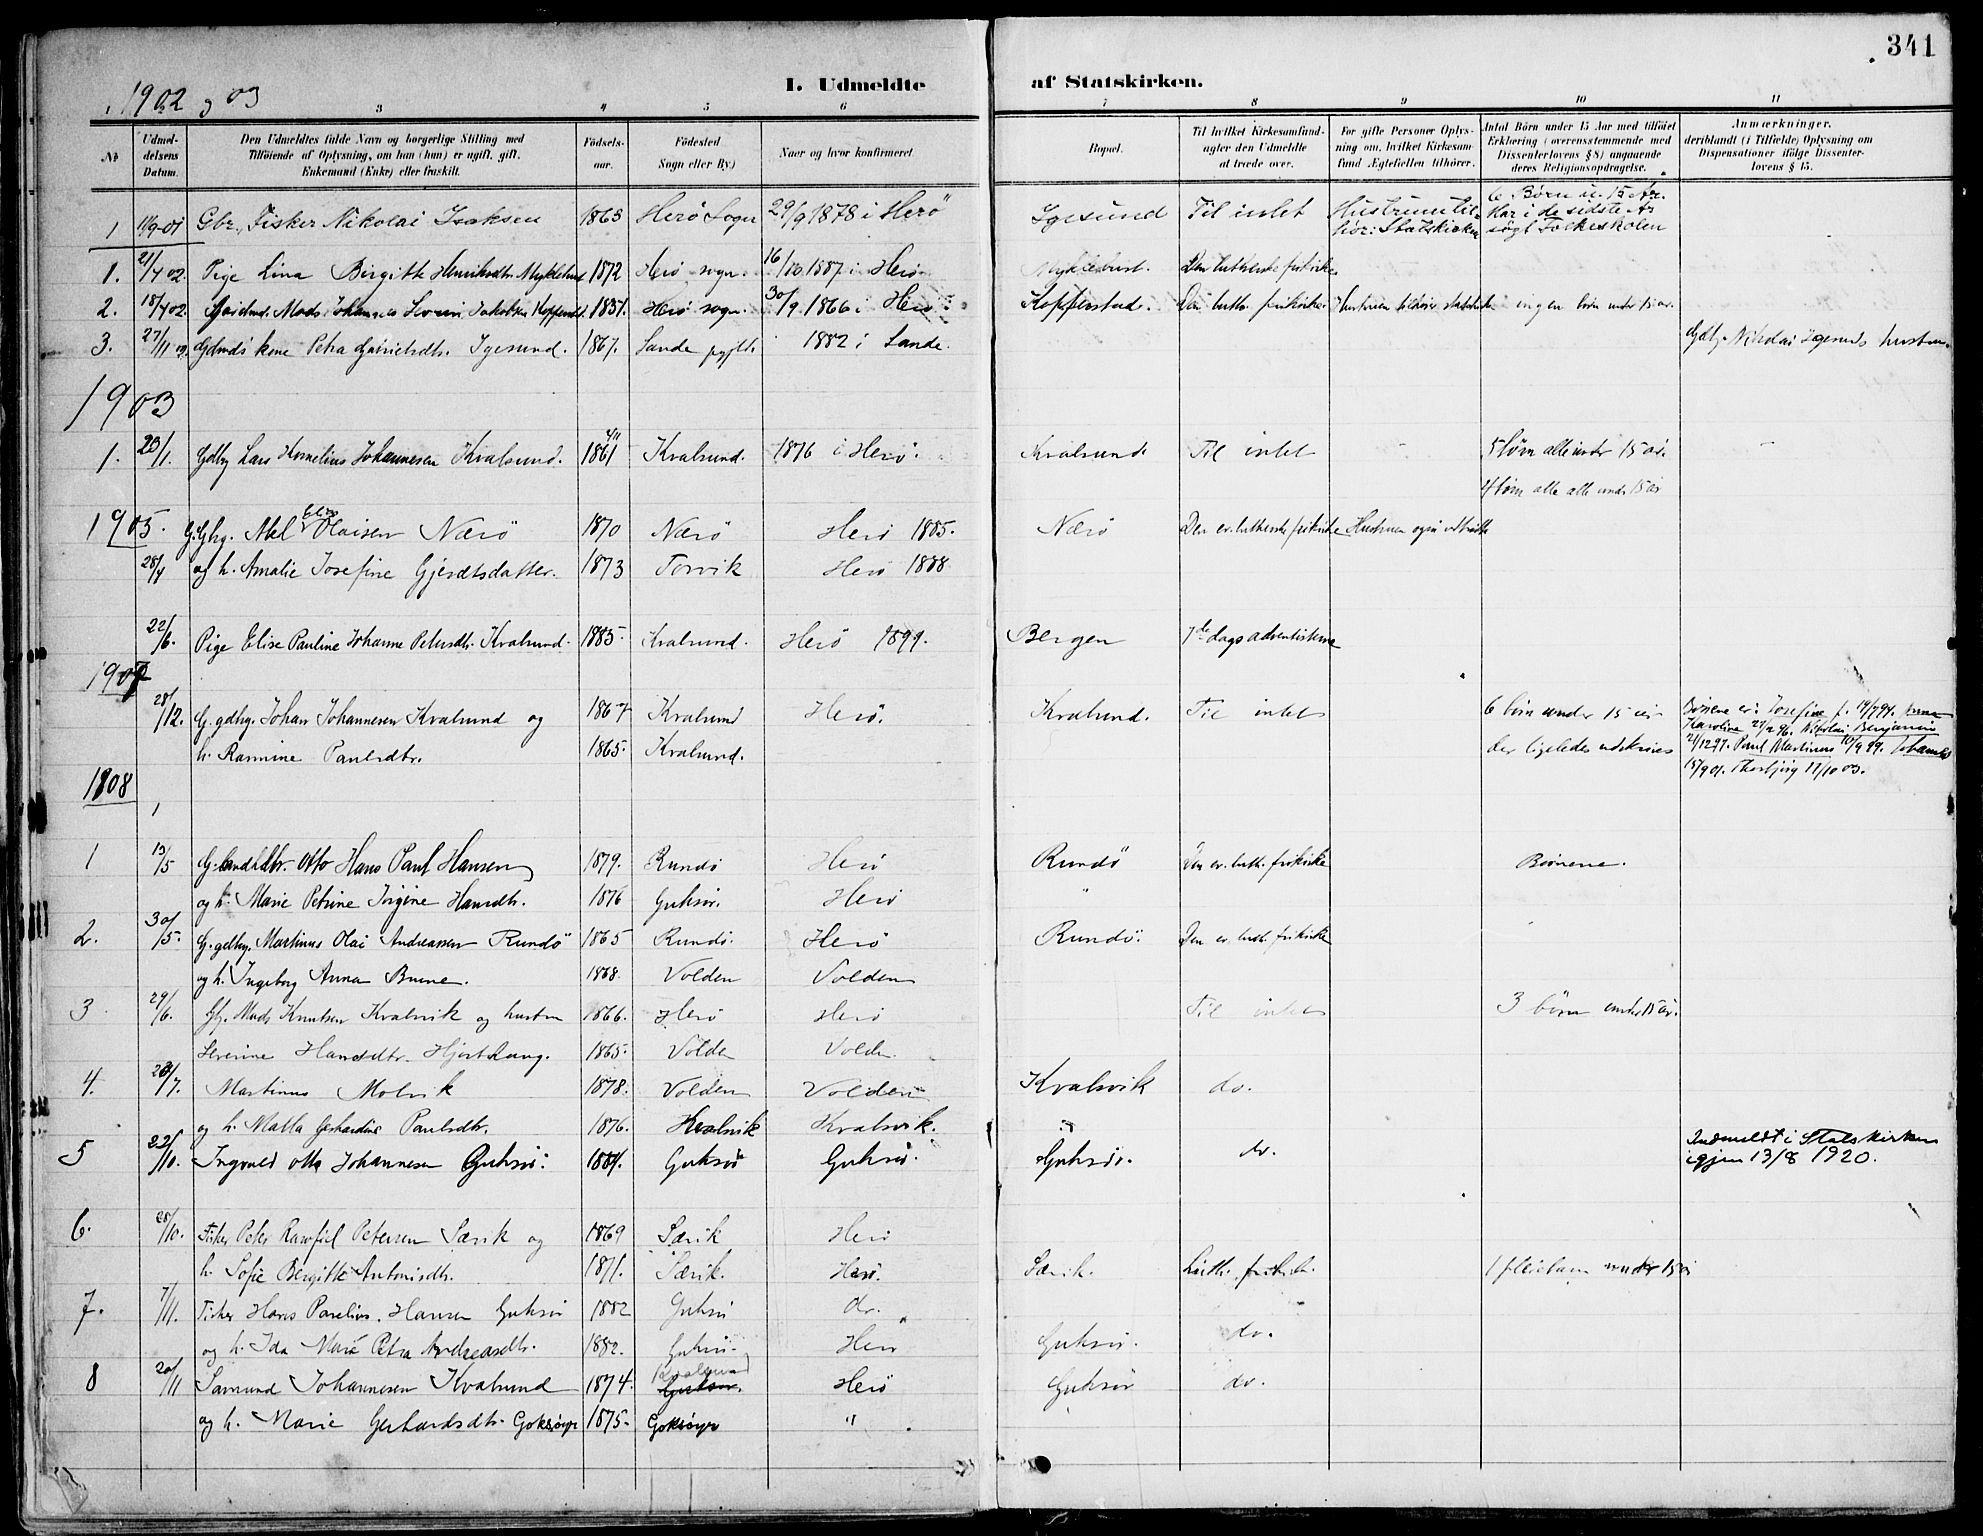 341
1902 og 03
I. Udmeldte af Statskirken.
3 4 5 6 7 8 9 10 11
Nr.
Udmeldelsens Datum.
Den Udmeldtes fulde Navn og borgerlige Stilling med
Tilföiende af Oplysning, om han (hun) er ugift, gift,
Enkemand (Enke) eller fraskilt.
Födsels-
aar.
Födested
Sogn eller By.)
Naar og hvor konfirmeret
Bopæl.
Til hvilket Kirkesamfund
agter den Udmeldte
at træde over.
For gifte Personer Oplys-
ning om, hvilket Kirkesam-
fund Ægtefællen tilhörer.
Antal Börn under 15 Aar med tilföiet
Erklæring (overensstemmende med
Dissenterlovens § 8) angaaende
deres Religionsopdragelse.
Anmærkninger,
deriblandt (i Tilfælde) Oplysning om
Dispensationer ifölge Dissenter-
lovens § 15.
1 11/9-01 Gbr. Fisker Nikolai Isaksen 1863 Herö Sogn 29/9 1878 i Herö Igesund Til intet Hustruen til-
hör: Statskirken 6 Børn u. 15 Ar.
Har i de sidste Ar
søgt Folkeskolen
1. 21/4 02. Pige Lina Birgitte Henriksdtr. Myklebust 1872 Herö sogn. 16/10 1887 i Herö Myklebust. Den lutherske frikirke
2. 18/4 02. Mads Johannes Severin Jakobsen 1851. Herö sogn. 30/9 1866 i Herö Kopperstad. Den luth. frikirke Hustruen tilhører statskirk ingen børn under 15 ar.
3. 27/11 Gdmds kone Petra Gabrielsdtr. Igesund. 1867. Sande pgjld. 1882 i Sande. Gdbr. Nikolai Igesunds hustru.
1903
1. 23/1. Gdbg Lars Kornelius Johannesen Kvalsund. 4/11 1861 Kvalsund. 1876 i Herö. Kvalsund. Til intet 5 børn alle under 15 år.
4 børn alle alle under 15 år
1905. G. Gbg. Abel Elias Olaisen Nærö 1870 Nærö Herö 1885. Nærö Den ev. lutherske frikirke Hustruen også udtrådt
28/4 og h. Amalie Josefine Gjerdtsdatter. 1873 Torvik Herö 1888
22/6. Pige Elise Pauline Johanne Petersdtr. Kvalsund. 1885. Kvalsund. Herö 1899. Bergen 7de dags adventisterne
1907
28/12. G. gdbg. Johan Johannesen Kvalsund og 1867 Kvalsund Herö. Kvalsund. Til intet 6 børn under 15 år Børnene er: Josefine f. 14/7 94.
h. Rasmine Paulsdtr. 1865. Kvalsund. der ligeledes udskrives Karoline 27/2 96. Nikolai Benjamin
21/12 97. Paul Martinus 10/9 99. Johannes
15/9 01. Thorbjørg 17/10 03.
1908
1
1 13/5 G. landhdlr. Otto Hans Paul Hansen 1879. Rundö Herö Rundö Den ev. luth. frikirke Børnene.
og h. Marie Petrine Jørgine Hansdtr. 1876 Guksør. Herö "
2. 30/5. G. gdbg. Martinus Olai Andreassen Rundö 1865 Rundö. Herö Rundö. Den ev. luth. frikirke
og h. Ingeborg Anna Brune. 1868. Volden Volden
3 29/6. Gbr. Mads Knutsen Kvalsvik og hustru 1866. Herö Herö Til intet 3 børn under 15 år.
Severine Hansdtr. Hjorthaug. 1865. Volden Volden
4. 28/7. Martinus Molvik 1878. Volden Volden Kvalsvik do.
og h. Malla Gerhardine Paulsdtr. 1876. Kvalsvik Kvalsvik. "
5 22/10. Ingvald Otto Johannesen Guksör. Guksör Guksör. Guksör. do. Indmeldt i Statskirken
igjen 13/8 1920.
6. 28/10. Fisker Peter Petersen Særik og 1869 Særik Herö
h. Sofie Bergitte Antonisdtr. 1871. Særik. Herö. Særik. Luth. frikirk. 1 pleiebarn under 15 år
7. 7/11. Fisker Hans Parelius Hansen Guksör 1882 Guksör do.
og h. Ida Marie Petra Andreasdtr. 1882. Guksör. Herö Guksör. do.
8 20/11 Samund Johannesen Kvalsund 1874. Kvalsund Guksör. Herö Guksör do.
og h. Marie Gerhardsdtr. Goksöyr 1875. Goksöyr "